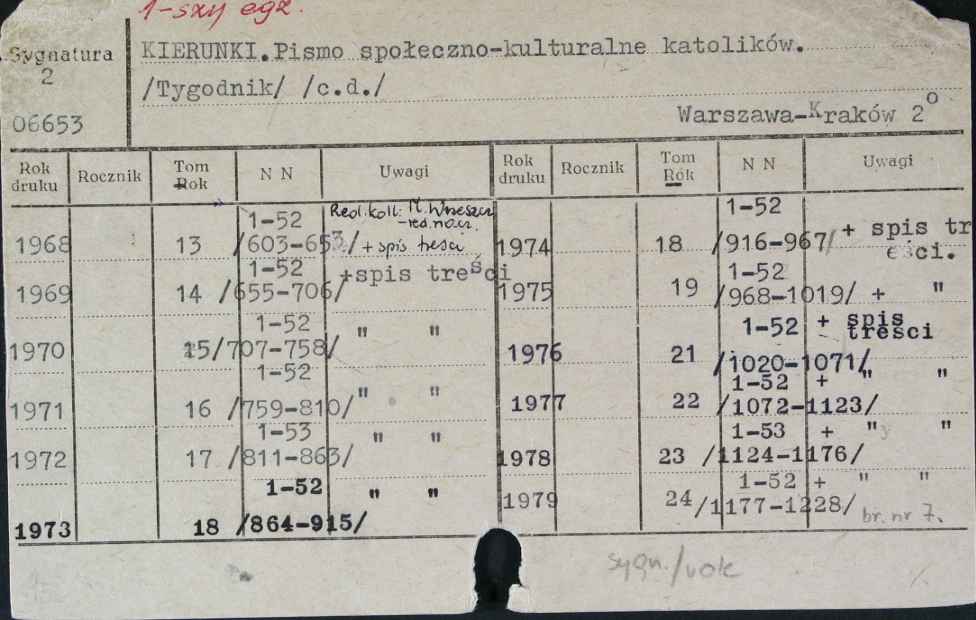 1-szy egz.
Sygnatura
2
06653
KIERUNKI. Pismo społeczno-kulturalne katolików.
/Tygodnik/ /c.d./
Warszawa-Kraków 2°
Rok druku Rocznik Tom Rok N N Uwagi Rok druku Rocznik Tom Rok N N Uwagi
1968 13 1-52 /603-653/ Red. koll: M. Wrzeszcz - red. nacz. + spis treści
1969 14 1-52 /655-706/ +spis treści
1970 15 1-52 /707-758/ " "
1971 16 1-52 /759-810/ " "
1972 17 1-53 /811-863/ " "
1973 18 1-52 /864-915/ " "
1974 18 1-52 /916-967/ + spis treści.
1975 19 1-52 /968-1019/ + "
1976 21 1-52 /1020-1071/ + spis treści
1977 22 1-52 /1072-1123/ + " "
1978 23 1-53 /1124-1176/ + " "
1979 24 1-52 /1177-1228/ + " "
br. nr 7.
sygn./rok